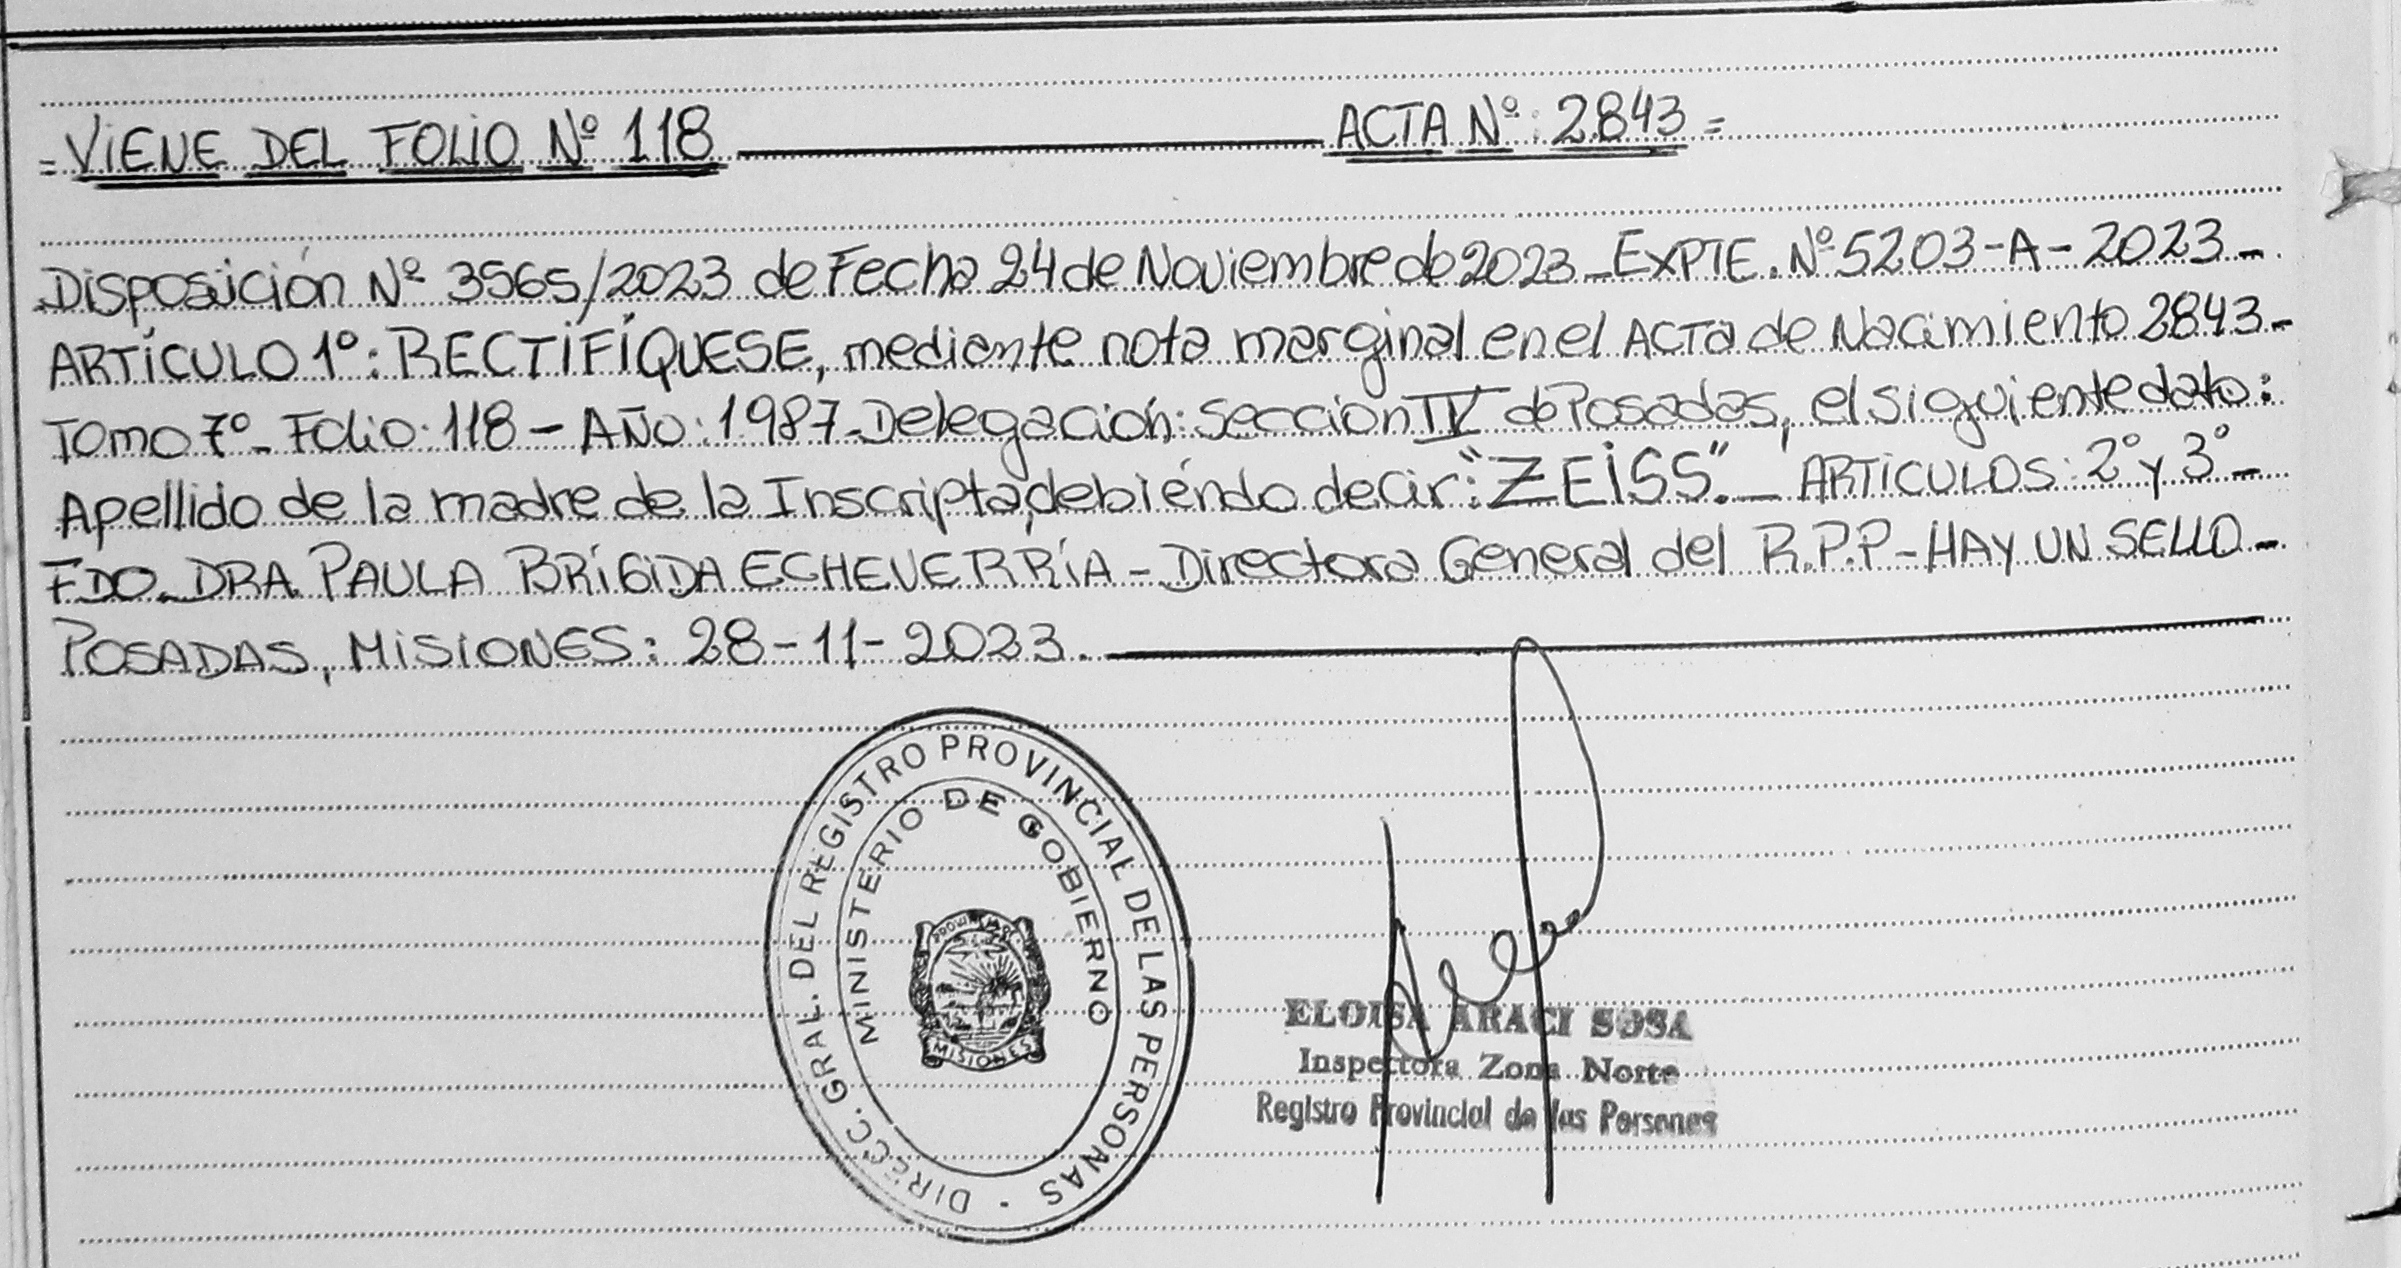 = VIENE DEL FOLIO Nº 118 ACTA Nº: 2843 =
Disposición Nº 3565/2023 de Fecha 24 de Noviembre de 2023 - EXPTE. Nº 5203-A-2023-
ARTÍCULO 1º: RECTIFÍQUESE, mediante nota marginal en el ACTA de Nacimiento 2843-
Tomo 7º - Folio: 118 - AÑO: 1987 - Delegación: Sección IV de Posadas, el siguiente dato:
Apellido de la madre de la Inscripta, debiendo decir: "ZEISS". - ARTICULOS: 2º y 3º -
FDO. DRA. PAULA BRÍGIDA ECHEVERRÍA - Directora General del R.P.P - HAY UN SELLO -
POSADAS, MISIONES: 28-11-2023.
DIRECC. GRAL. DEL REGISTRO PROVINCIAL DE LAS PERSONAS
MINISTERIO DE GOBIERNO
MISIONES
ELOISA ARACI SOSA
Inspectora Zona Norte
Registro Provincial de las Personas